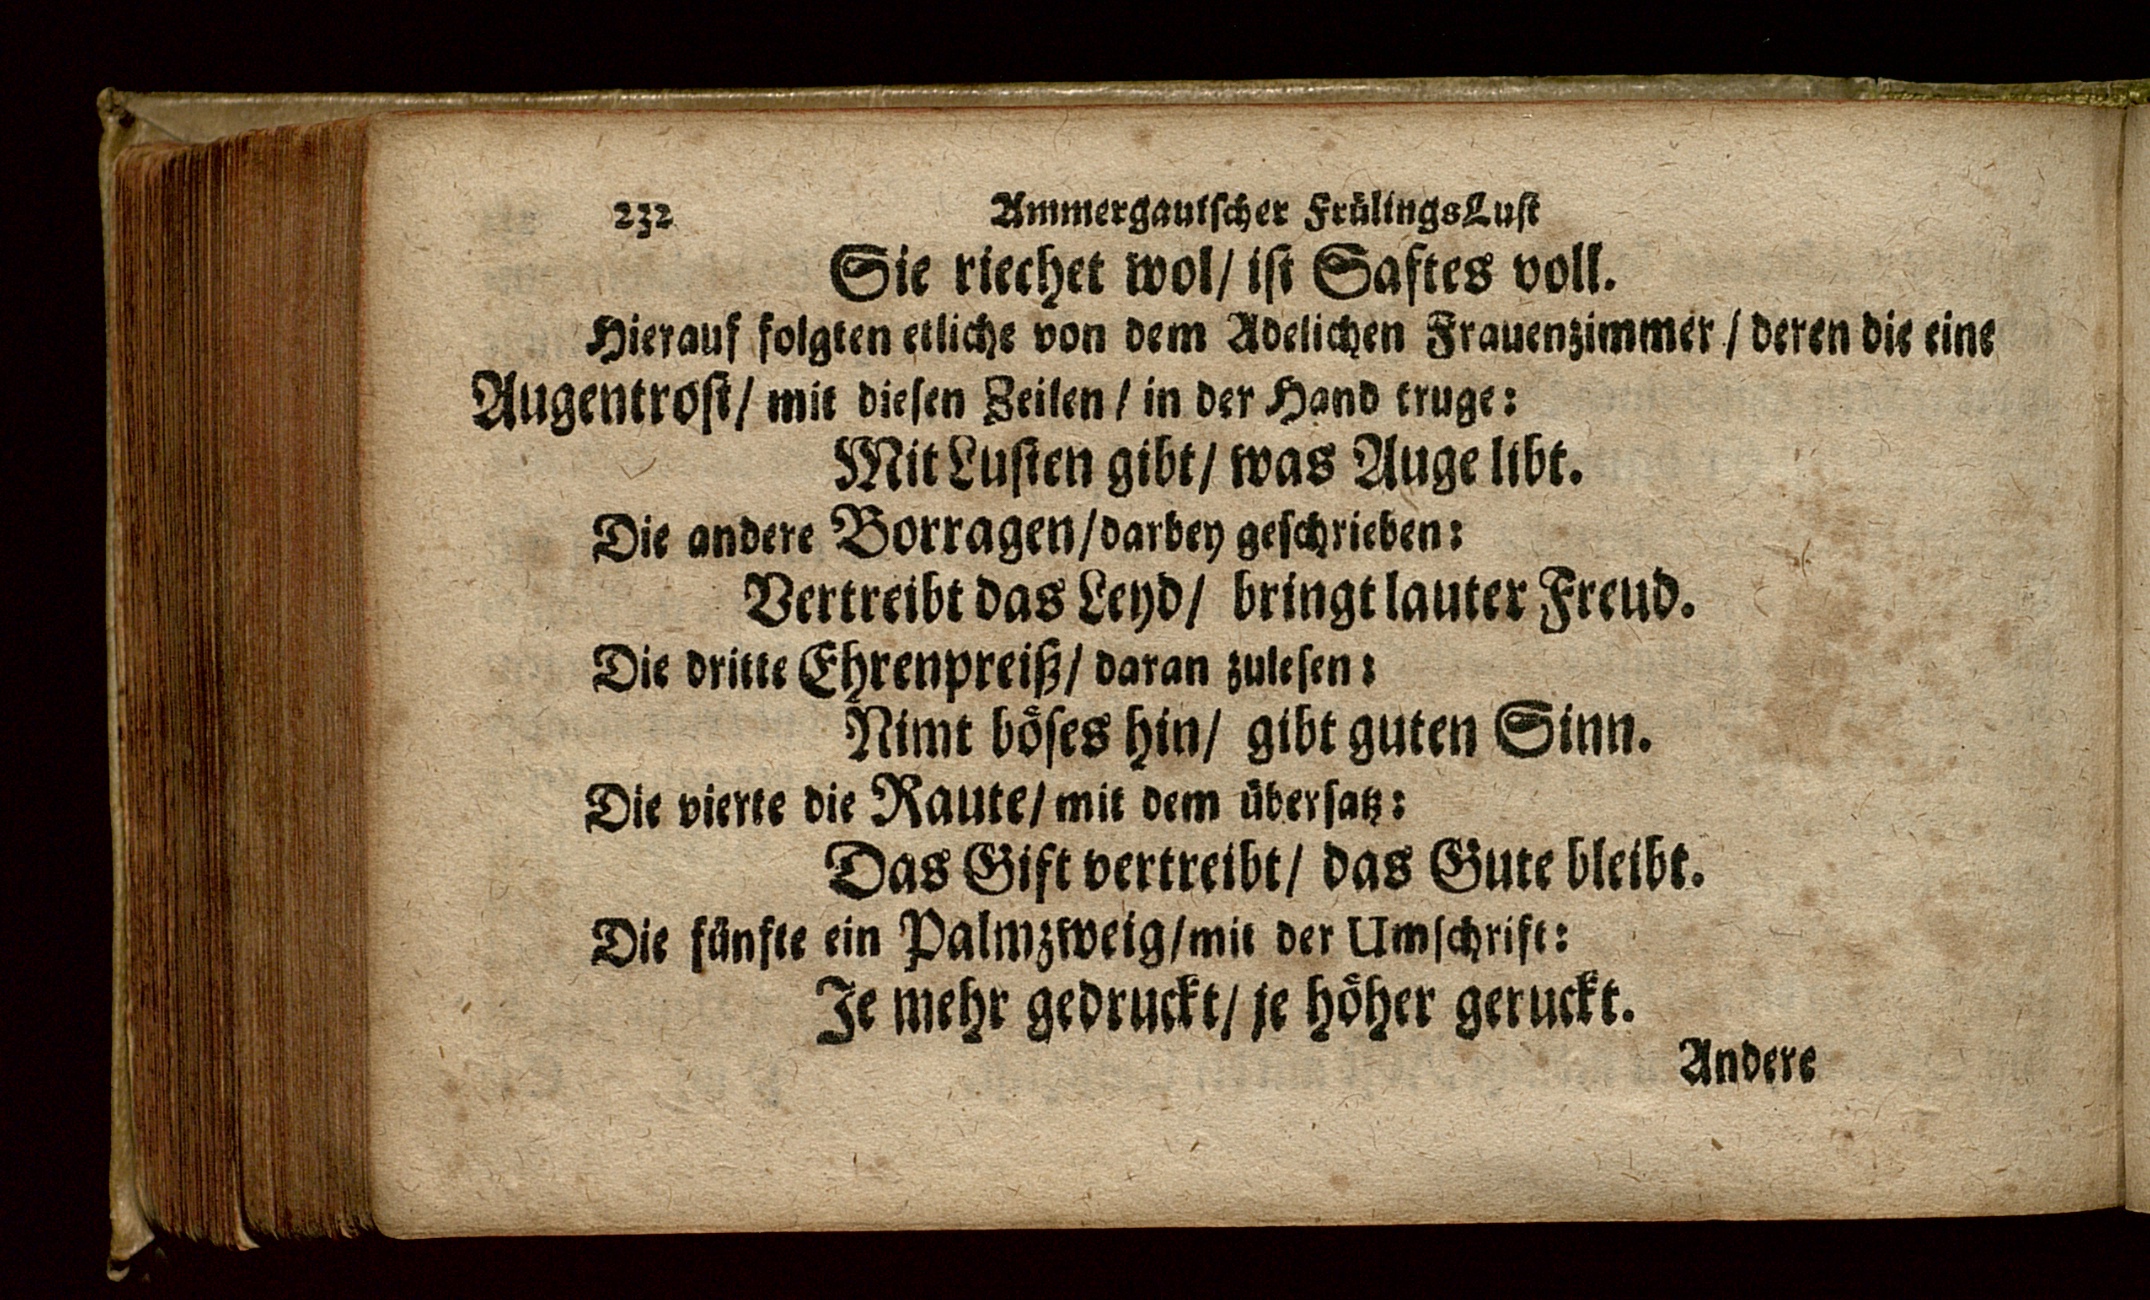 232 Ammergauiſcher FrůlingsLuſt
Sie riechet wol/ iſt Saftes voll.
Hierauf folgten etliche von dem Adelichen Frauenzimmer / deren die eine
Augentroſt/ mit dieſen Zeilen / in der Hand truge:
Mit Luſten gibt/ was Auge libt.
Die andere Borragen/darbey geſchrieben:
Vertreibt das Leyd/ bringt lauter Freud.
Die dritte Ehrenpreiß/ daran zuleſen:
Nimt bôſes hin/ gibt guten Sinn.
Die vierte die Raute/ mit dem ůberſatz:
Das Gift vertreibt/ das Gute bleibt.
Die fůnfte ein Palmzweig/mit der Umſchrift:
Je mehr gedruckt/ je hôher geruckt.
Andere